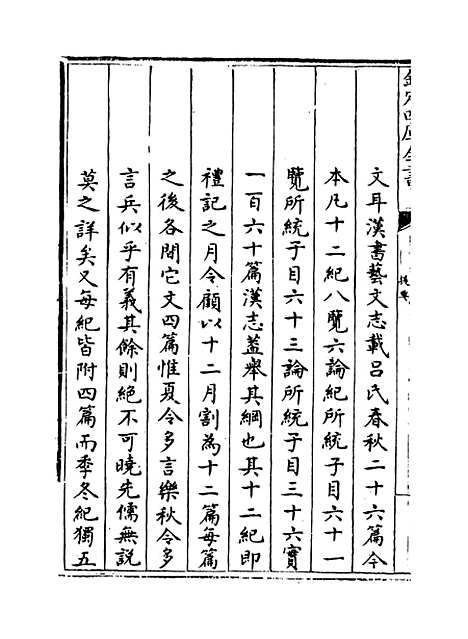 欽定四庫全書
提要
文耳漢書藝文志載呂氏春秋二十六篇今
本凡十二紀八覽六論紀所統子目六十一
覽所統子目六十三論所統子目三十六實
一百六十篇漢志蓋舉其綱也其十二紀即
禮記之月令顧以十二月割為十二篇每篇
之後各間它文四篇惟夏令多言樂秋令多
言兵似乎有義其餘則絕不可曉先儒無說
莫之詳矣又每紀皆附四篇而季冬紀獨五